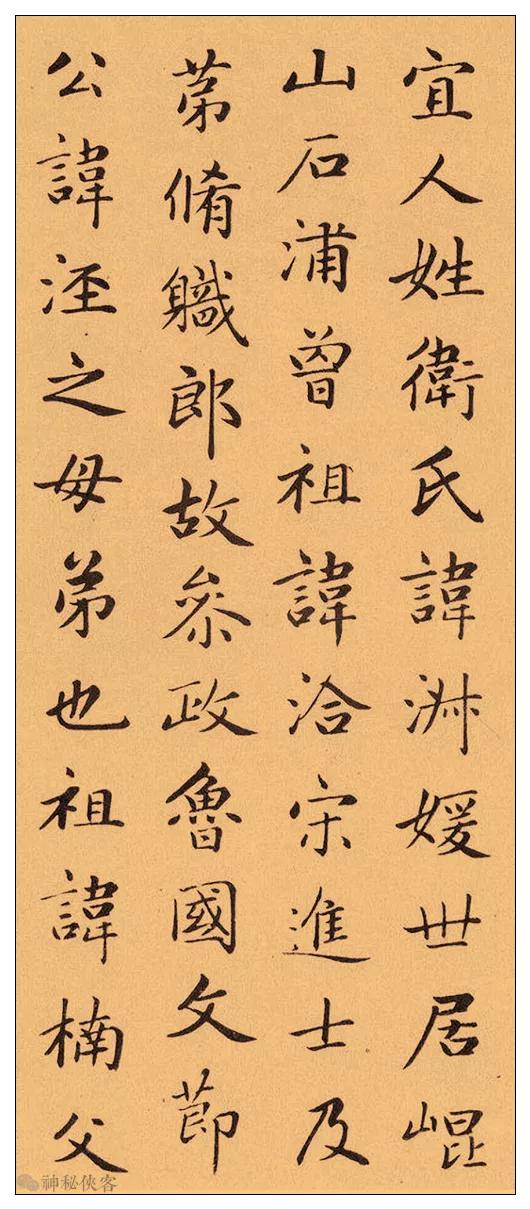 宜人姓衛氏諱淑媛世居崐
山石浦曾祖諱洽宋進士及
苐脩軄郎故叅政魯國文莭
公諱涇之母弟也祖諱楠父
神秘俠客